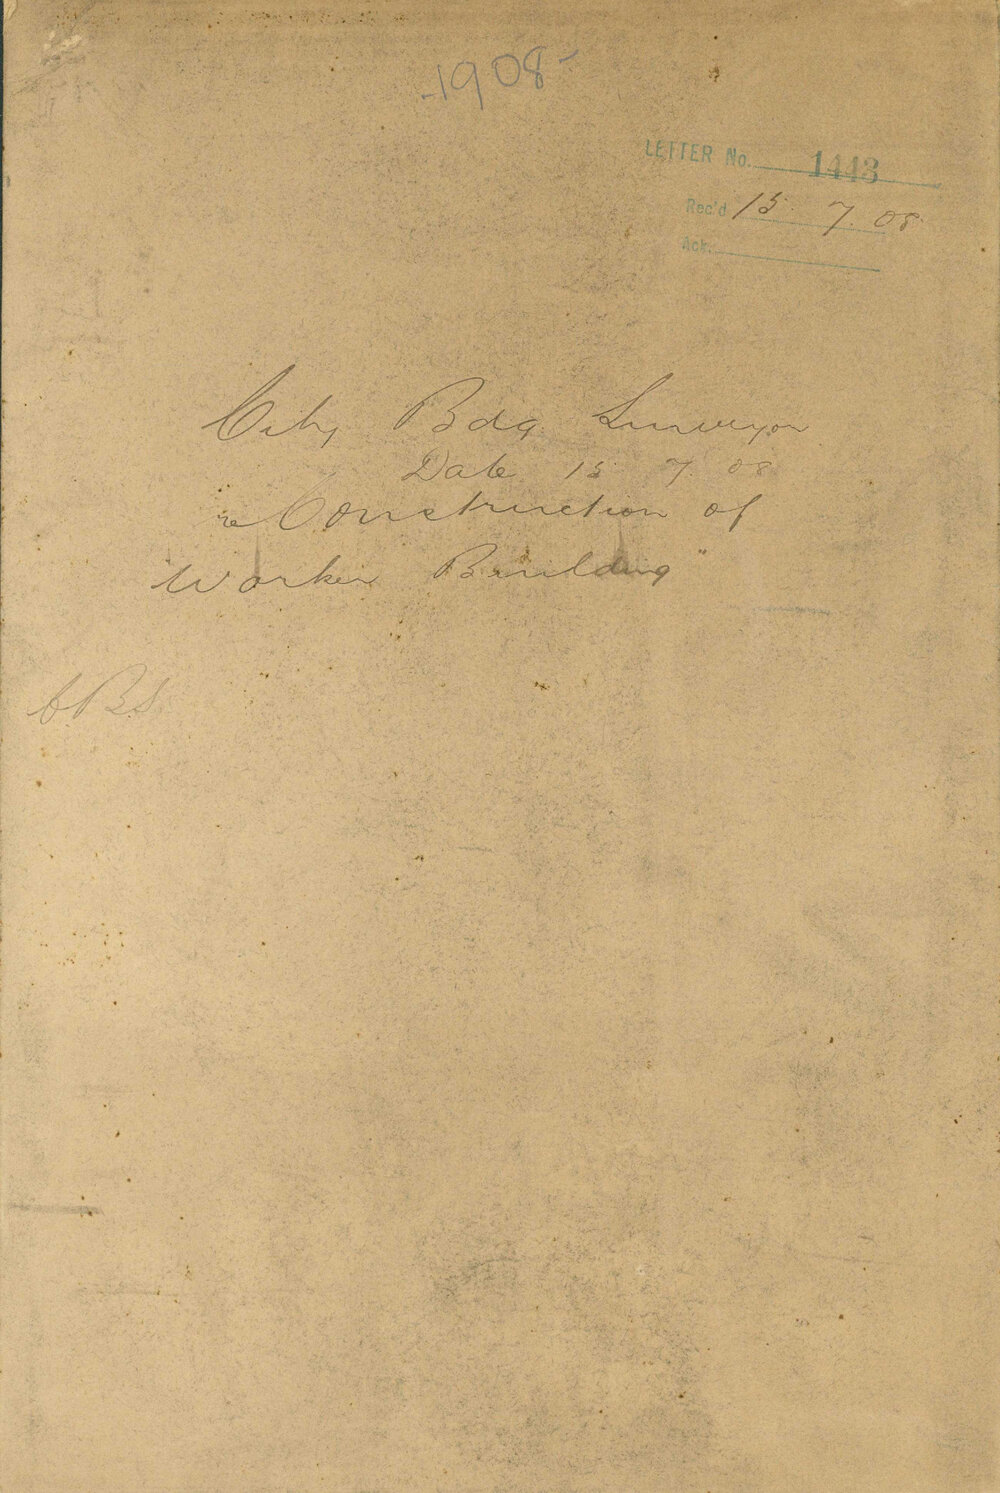 -1908-
LETTER No. 1443
Rec'd 15. 7. 08
Ack.
City Bdg Surveyor
Date 15 7. 08
re Construction of
"Worker Building"
CBS